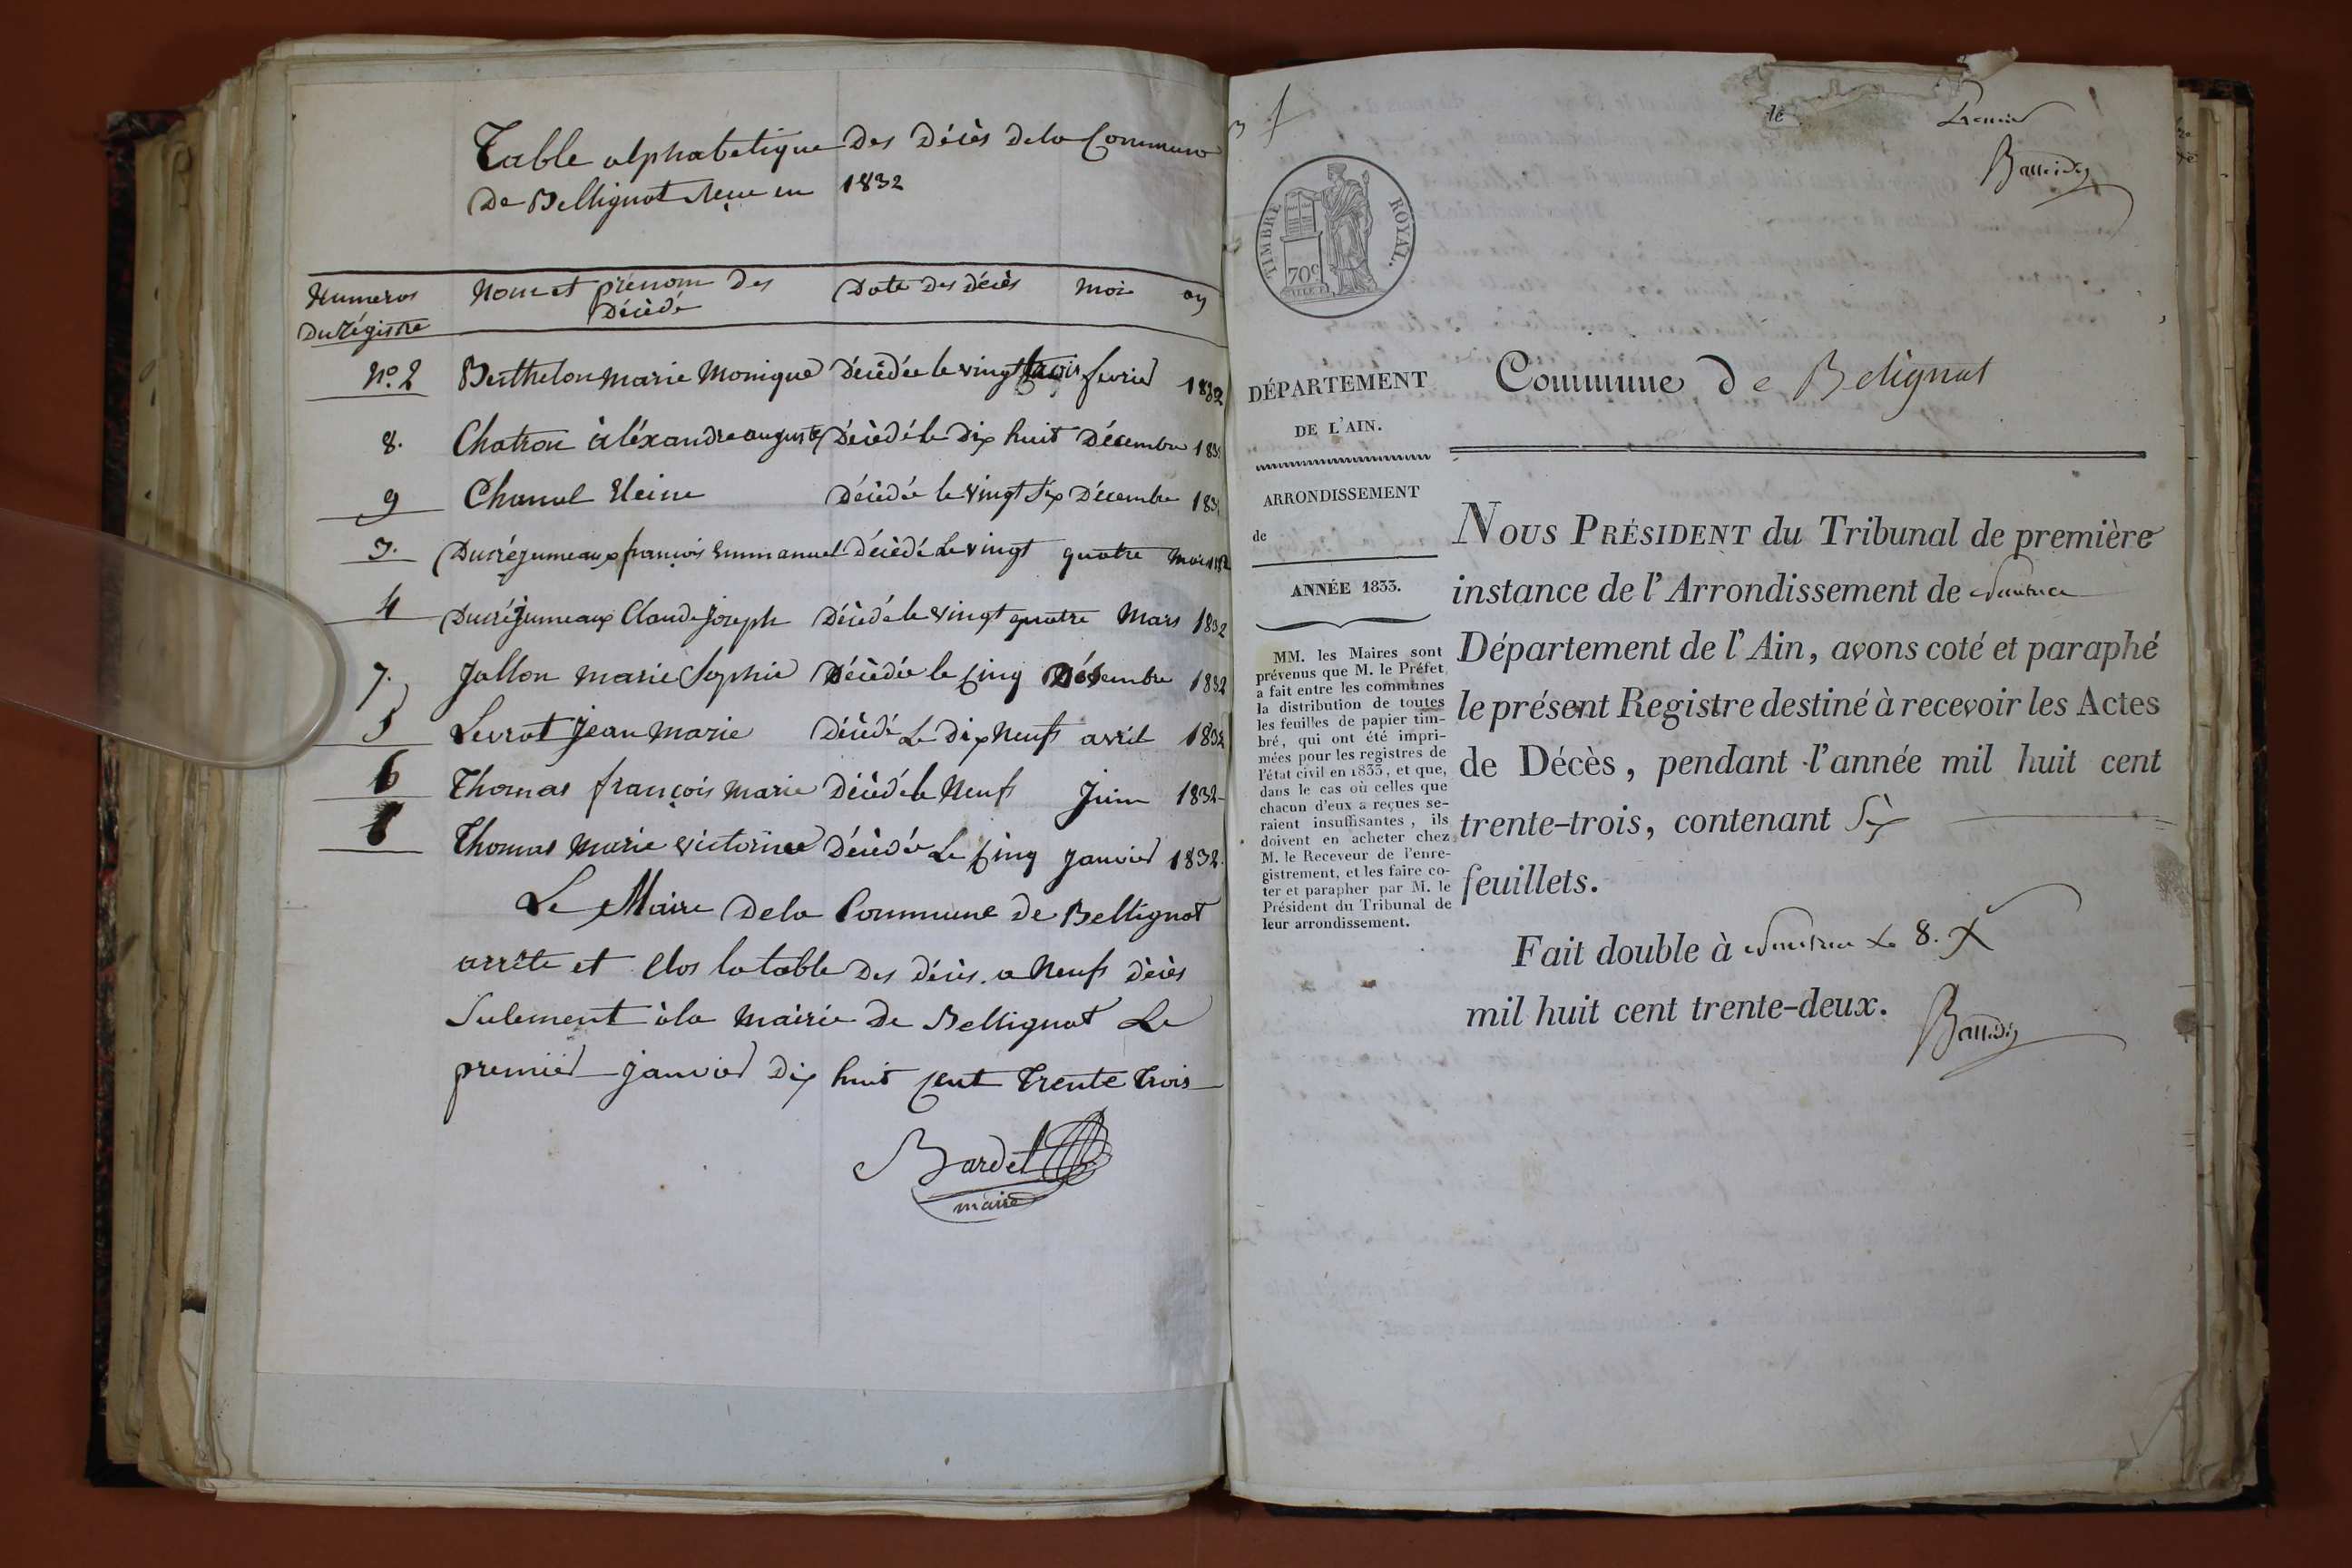 Table alphabetique des décès dela Commune
de Bellignat reçu en 1832
Numeros
Du régistre
Nom et prénom des
Décédé
Date des décès
Mois
an
N.º 2 Berthelon marie Monique Décédée le vingt trois fevrier 1832
8. Chatron aléxandre auguste Décédé le Dix huit Décembre 183
9 Chanul Reine Décédée le vingt six Décembre 183
3. Ducréjumeaux françois Emmanuel décédé Le vingt quatre Mars 1832
4 Ducréjumeaux Claude Joseph Décédé le vingt quatre Mars 1832
7. Jallon marie Sophie Décédée le cinq Décembre 1832
5 Levrat Jean marie Décédé Le dix Neuf avril 1832
6 Thomas françois marie Décédé le Neuf Juin 1832
1 Thomas marie victorine Décédée Le cinq Janvier 1832.
Le Maire dela Commune de Bellignat
arrête et Clos la table des décès. a Neuf décès
Sulement à la Mairie de Bellignat Le
premier janvier dix huit cent trente trois
Bardet
maire
le
Premier
TIMBRE ROYAL.
70c
DÉPARTEMENT
DE L'AIN.
ARRONDISSEMENT
de
ANNÉE 1833.
MM. les Maires sont
prévenus que M. le Préfet
a fait entre les communes
la distribution de toutes
les feuilles de papier tim-
bré, qui ont été impri-
mées pour les registres de
l'état civil en 1833, et que,
dans le cas où celles que
chacun d'eux a reçues se-
raient insuffisantes, ils
doivent en acheter chez
M. le Receveur de l'enre-
gistrement, et les faire co-
ter et parapher par M. le
Président du Tribunal de
leur arrondissement.
Commune de Belignat
NOUS PRÉSIDENT du Tribunal de première
instance de l'Arrondissement de Nantua
Département de l'Ain, avons coté et paraphé
le présent Registre destiné à recevoir les Actes
de Décès, pendant l'année mil huit cent
trente-trois, contenant Six
feuillets.
Fait double à Nantua le 8. X
mil huit cent trente-deux.